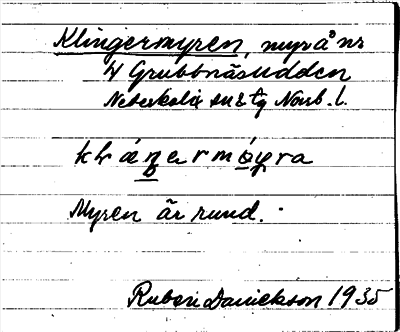 Klingermyren, myr å nr
V Grubbnäsudden
Nederkalix sn & tg Norrb. l.
Myren är rund.
Ruben Danielsson 1935